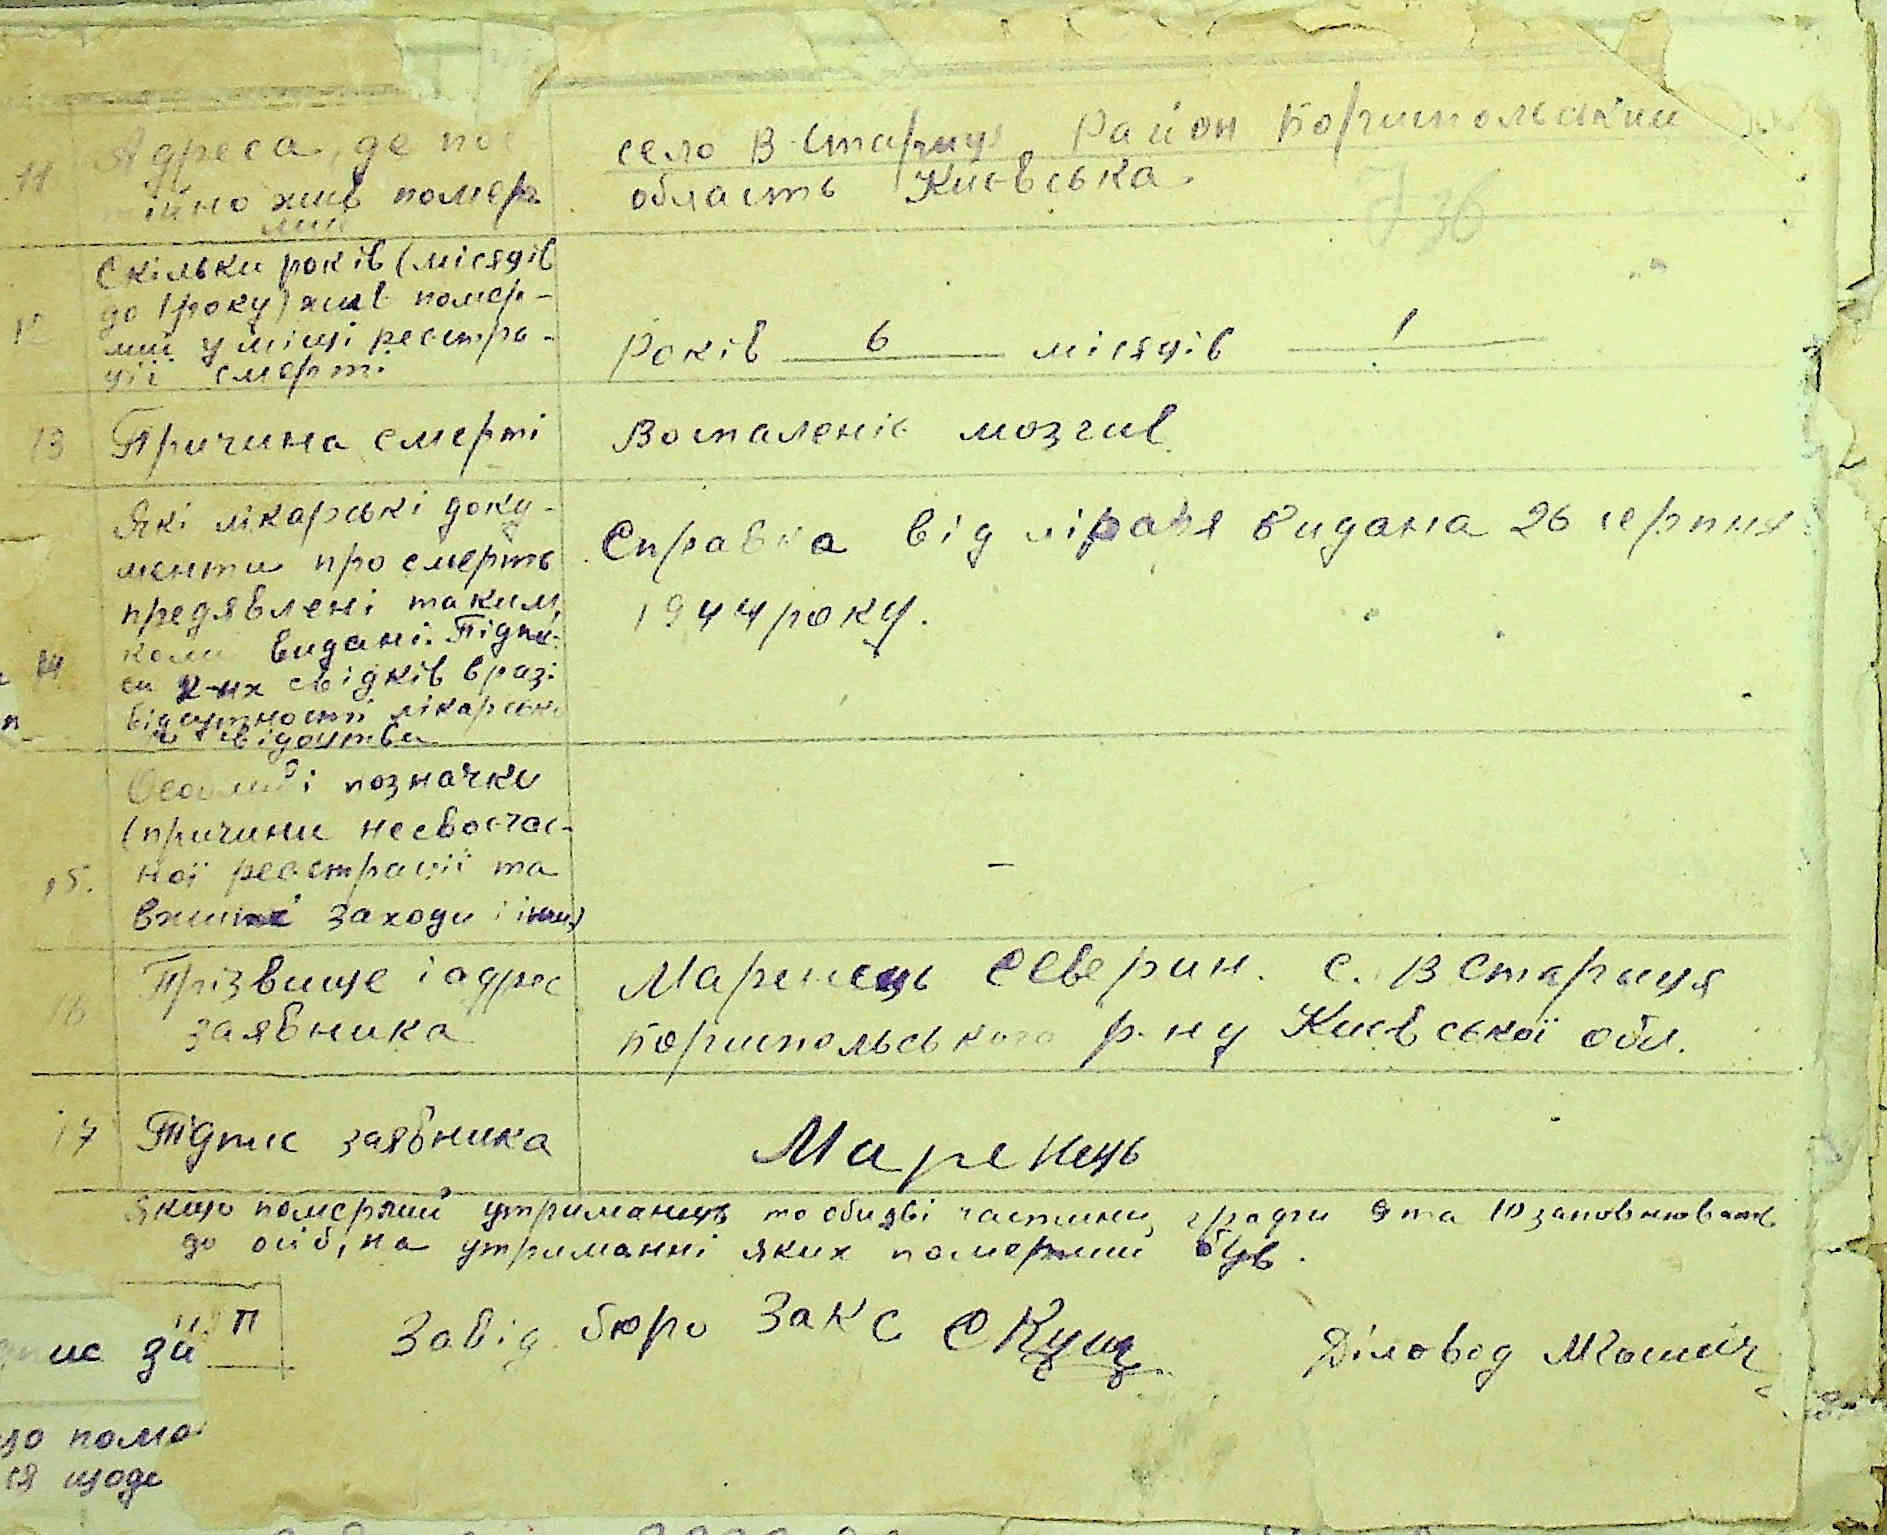 11 Адреса, де пос
тійно жив помер
лий
село В-Стариця Район Бориспольский
область Киевська.
736
12 Скільки років (місяців
до 1 року) жив помер-
лий у місці реєстра-
ції смерті
Років 6 місяців 1
13 Причина смерті
Воспаленіє мозгив
14 Які лікарські доку-
менти про смерть
предявлені таким,
коли видані. Підпи-
си 2-их свідків в разі
відсутності лікарсько
го свідоцтва
Справка від лікаря видана 26 серпня
1944 року.
15. Особливі позначки
(причини несвоєчас-
ної реєстрації та
вжиті заходи і інш)
–
16 Прізвище і адрес
заявника
Маренець Северин. С. В Стариця
Бориспольського р-ну Киевської обл.
17 Підпис заявника
Маренець
Якщо померлий утриманець то обидві частини графи 9 та 10 заповнюють
до осіб, на утриманні яких померлий був.
П
Завід. бюро Закс
Діловод
пис за
що поме
ся щоде